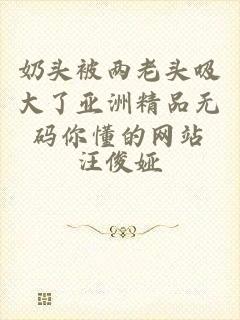 奶头被两老头吸
大了亚洲精品无
码你懂的网站
汪俊娅